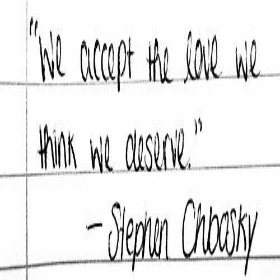 "We accept the love we
think we deserve."
- Stephen Chbosky